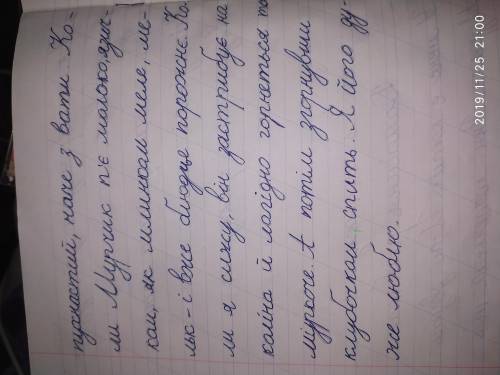 пухнастий, наче з вати. Ко-
ли Мурчик п'є молоко, язич-
ком, як млинком меле, ме-
льк - і вже блюдце порожнє. Ко
ли я сижу, він застрибує на
коліна й лагідно горнеться та
муркоче. А потім згорнувшись
клубочком, спить. Я його ду-
же люблю.
2019/11/25 21:00